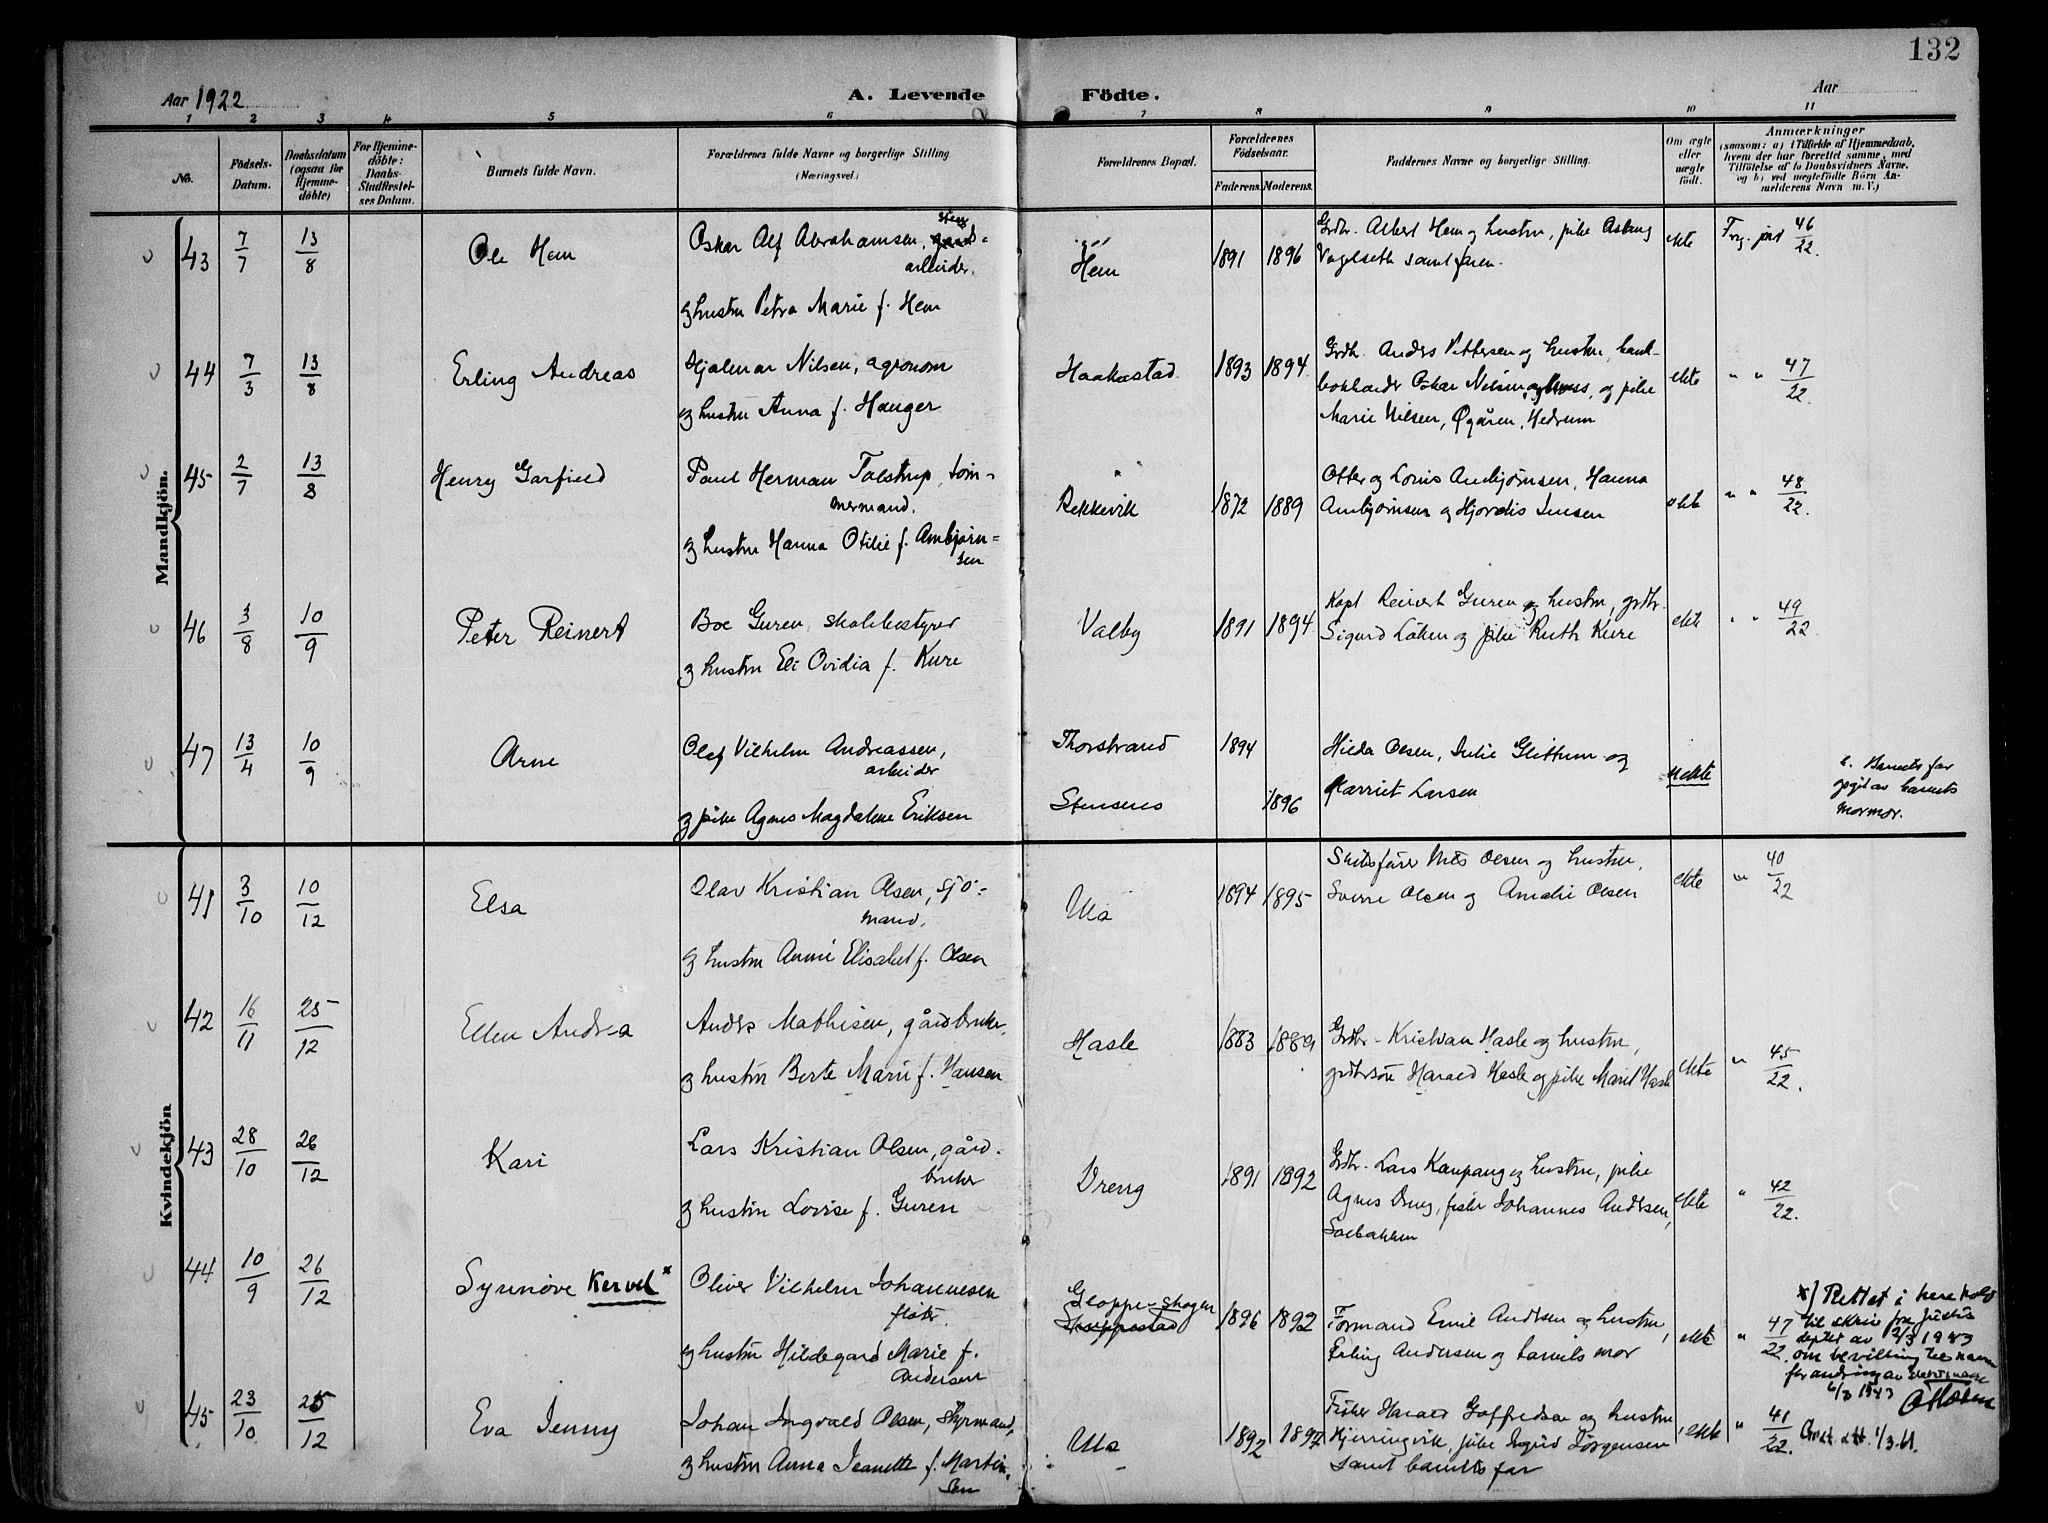 132
Aar 1922
A. Levende
Födte.
Aar
1 2 3 4 5 6 7 8 9 10 11
No.
Födsels-
Datum.
Daabsdatum
(ogsaa for
Hjemme-
döbte)
For Hjemme-
döbte:
Daabs-
Stadfæstel-
ses Datum.
Barnets fulde Navn.
Forældrenes fulde Navne og borgerlige Stilling.
(Næringsvei.)
Forældrenes Bopæl.
Forældrenes
Födselsaar.
Faderens. Moderens.
Faddernes Navne og borgerlige Stilling.
Om ægte
eller
uægte
födt.
Anmærkninger
(saasom: a) i Tilfælde af Hjemmedaab,
hvem der har forrettet samme, med
Tilföielse af to Daabsvidners Navne,
og b) ved uægtefödte Börn An-
melderens Navn m. V.)
Mandkjön.
43 7/7 13/8 Ole Hem
Oskar Alf Abrahamsen, sten-
arbeider.
og hustru Petra Marie f. Hem
Hem 1891 1896
Grdbr. Albert Hem og hustru, pike
samt faren.
ekte 46/22.
44 7/3 13/8 Erling Andreas
Hjalmar Nilsen, agronom
og hustru Anna f. Hauger
Haakastad 1893 1894
Grdbr. Anders Pettersen og hustru, bank-
Oskar Nilsen og pike
Marie Nilsen, Øgåren, Hedrum
ekte " " 47/22.
45 2/7 13/8 Henry Garfield
Paul Herman Tolstrup, töm-
mermand.
og hustru Hanna Otilie f. Ambjørn-
sen
Rekkevik 1872 1889
Otter og Lovis Ambjørnsen, Hanna
Ambjørnsen og Hjordis Jensen
ekte " " 48/22.
46 3/8 10/9 Peter Reinert
Boe Guren, skolebestyrer
og hustru Eli Ovidia f. Kure
Valby 1891 1894
Kapt. Reinert Guren og hustru, grdbr.
Sigurd Löken og pike Ruth Kure
ekte " " 49/22
47 13/4 10/9 Arne
Olaf Vilhelm Andreassen,
arbeider
og pike Agnes Magdalene Eriksen
Thorstrand 1894
Stenseres 1896
Hilda Olsen, Julie Glittum og
Harriet Larsen
uekte
Barnets far
opgit av barnets
mormor.
Kvindekjön
41 3/10 10/12 Elsa
Olav Kristian Olsen, sjö-
mand.
og hustru Annie Elisabet f. Olsen
Ula 1894 1895
Skibsfører Nils Olsen og hustru,
Sverre Olsen og Amalie Olsen
ekte " 40/22
42 16/11 25/12 Ellen Andrea
Anders Mathisen, gårdbruker,
og hustru Berte Marie f. Hansen
Hasle 1883 1889
Grdbr. Kristian Hasle og hustru,
grdbrsön Harald Hasle og pike Marit Hasle
ekte " 45/22.
43 28/10 26/12 Kari
Lars Kristian Olsen, gård-
bruker
og hustru Lovise f. Guren
Vreng 1891 1892
Grdbr. Lars Kaupang og hustru, pike
Agnes Vreng, fisker Johannes Andersen,
Solbakken
ekte " 42/22.
44 10/9 26/12 Synnöve Kervel x
Oliver Vilhelm Johannesen
fisker.
og hustru Hildegard Marie f.
Andersen
Gloppe-skogen
1896 1892
Formand Emil Andersen og hustru,
Erling Andersen og barnets mor
ekte " 47/22.
x) Rettet i henhold
til skriv fra Justis
deptet av 2/3 1943
om bevilling til navne
forandring av slektsnavn
6/3 1943
45 23/10 25/12 Eva Jenny
Johan Ingvald Olsen, styrmand,
og hustru Anna Jeanette f. Martin-
sen
Ula 1892 1892
Fisker Harald Gotfredsen og hustru
Hjerringvik, pike Ingrid Jørgensen
samt barnets far
ekte " 41/22. att. 1/3.61.